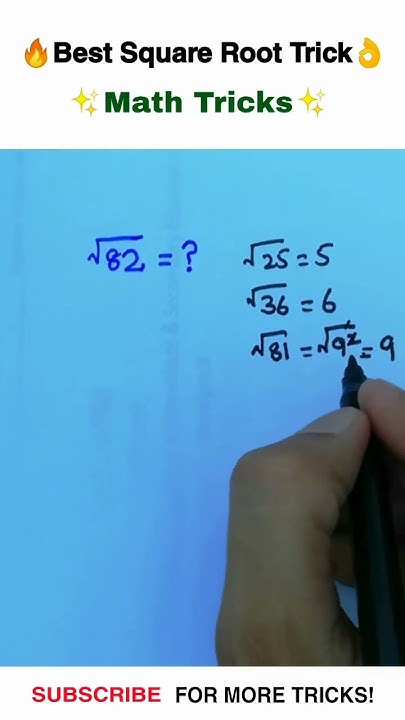 🔥Best Square Root Trick👌
✨Math Tricks✨
√82 = ?
√25 = 5
√36 = 6
√81 = √9² = 9
SUBSCRIBE FOR MORE TRICKS!